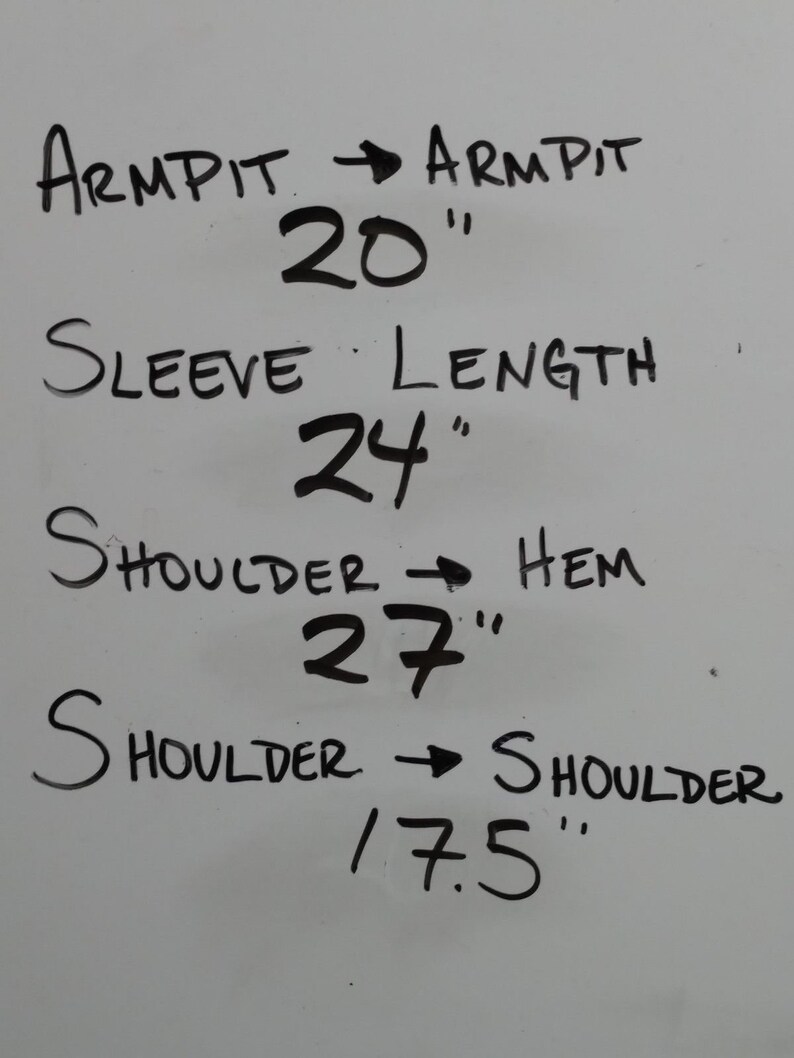 ARMPIT → ARMPIT
20"
SLEEVE LENGTH
24"
SHOULDER → HEM
27"
SHOULDER → SHOULDER
17.5"